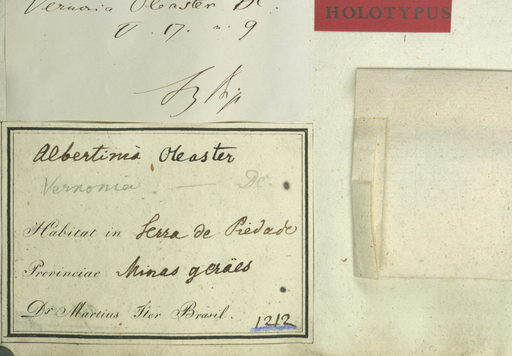 Vernonia Oleaster DC.
HOLOTYPUS
T. 17. n. 9
Sz Bip
Albertinia Oleaster
Vernonia — DC.
Habitat in Serra de Piedade
Provinciae Minas geräes
Dr. Martius Iter Brasil. 1212